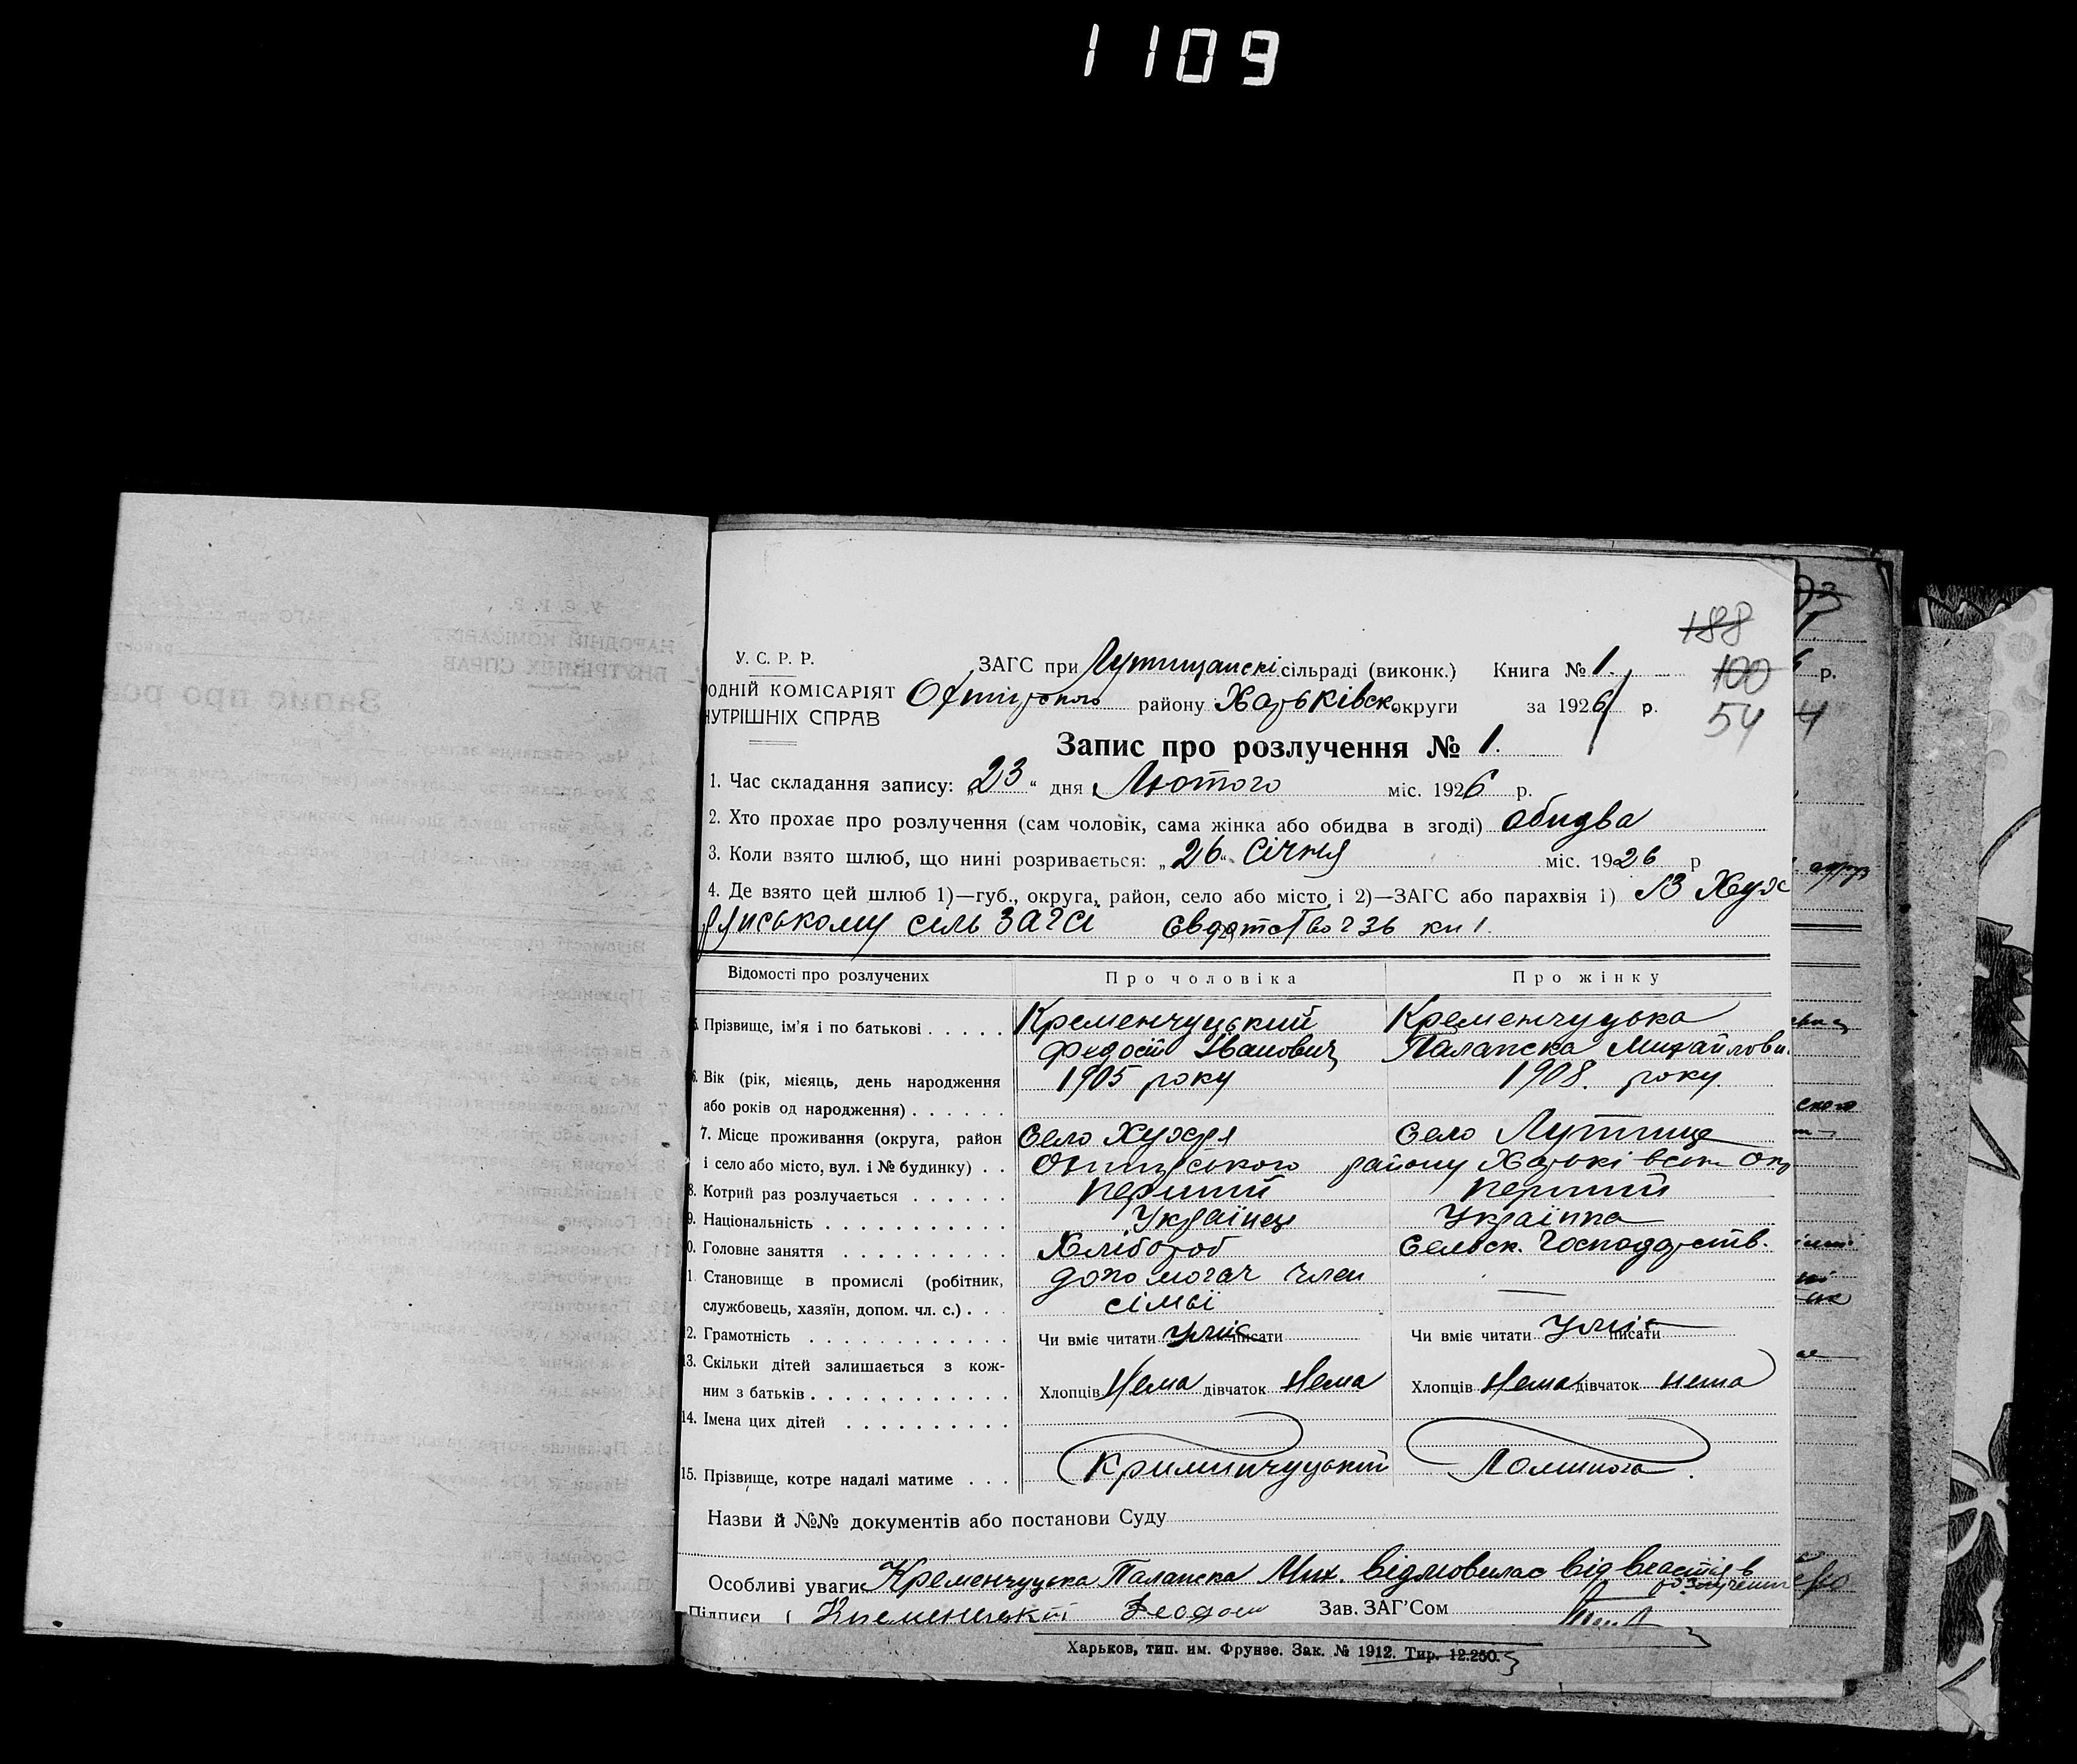 1109
188
100
54
У. С. Р. Р.
ЗАГС при Лутищанскі сільраді (виконк.) Книга № 1.
ОДНІЙ КОМІСАРІЯТ
району Харьківск. округи за 1926 р.
НУТРІШНІХ СПРАВ
Запис про розлучення № 1.
1. Час складання запису: „23“ дня Лютого міс. 1926 р.
2. Хто прохає про розлучення (сам чоловік, сама жінка або обидва в згоді) обидва
3. Коли взято шлюб, що нині розривається: „26“ Січня міс. 1926 р
4. Де взято цей шлюб 1)—губ., округа, район, село або місто і 2)—ЗАГС або парахвія 1) В Хух
дянському сіль ЗАГСІ ч 36 кн 1.
Відомості про розлучених Про чоловіка Про жінку
Прізвище, ім'я і по батькові . . . . . Кременчуцький Кременчуцька
Федост Іванович Палажка Михайлови.
Вік (рік, місяць, день народження 1905 року 1908. року
або років од народження) . . . . . .
7. Місце проживання (округа, район Село Хухря Село Лутище
і село або місто, вул. і № будинку) . . району Харькі вськ Окр
8. Котрий раз розлучається . . . . . . перший перший
9. Національність . . . . . . . . . . . Українець Українка
0. Головне заняття . . . . . . . . . . Хлібороб Сельск. Господарств.
1 Становище в промислі (робітник, допомогач член —
службовець, хазяїн, допом. чл. с.) . . . сімьї
2. Грамотність . . . . . . . . . . . . Чи вміє читати уміє писати Чи вміє читати уміє писати
13. Скільки дітей залишається з кож-
ним з батьків . . . . . . . . . . . . Хлопців Нема дівчаток Нема Хлопців Нема дівчаток нема
14. Імена цих дітей . . . . . . . . . .
15. Прізвище, котре надалі матиме . . . Криминчуцький
Назви й №№ документів або постанови Суду
Особливі уваги Кременчуцька Палажка Мих. відмовилас від
Підписи ( Зав. ЗАГ'Сом
Харьков, тип. им. Фрунзе. Зак. № 1912. Тир. 12.250.